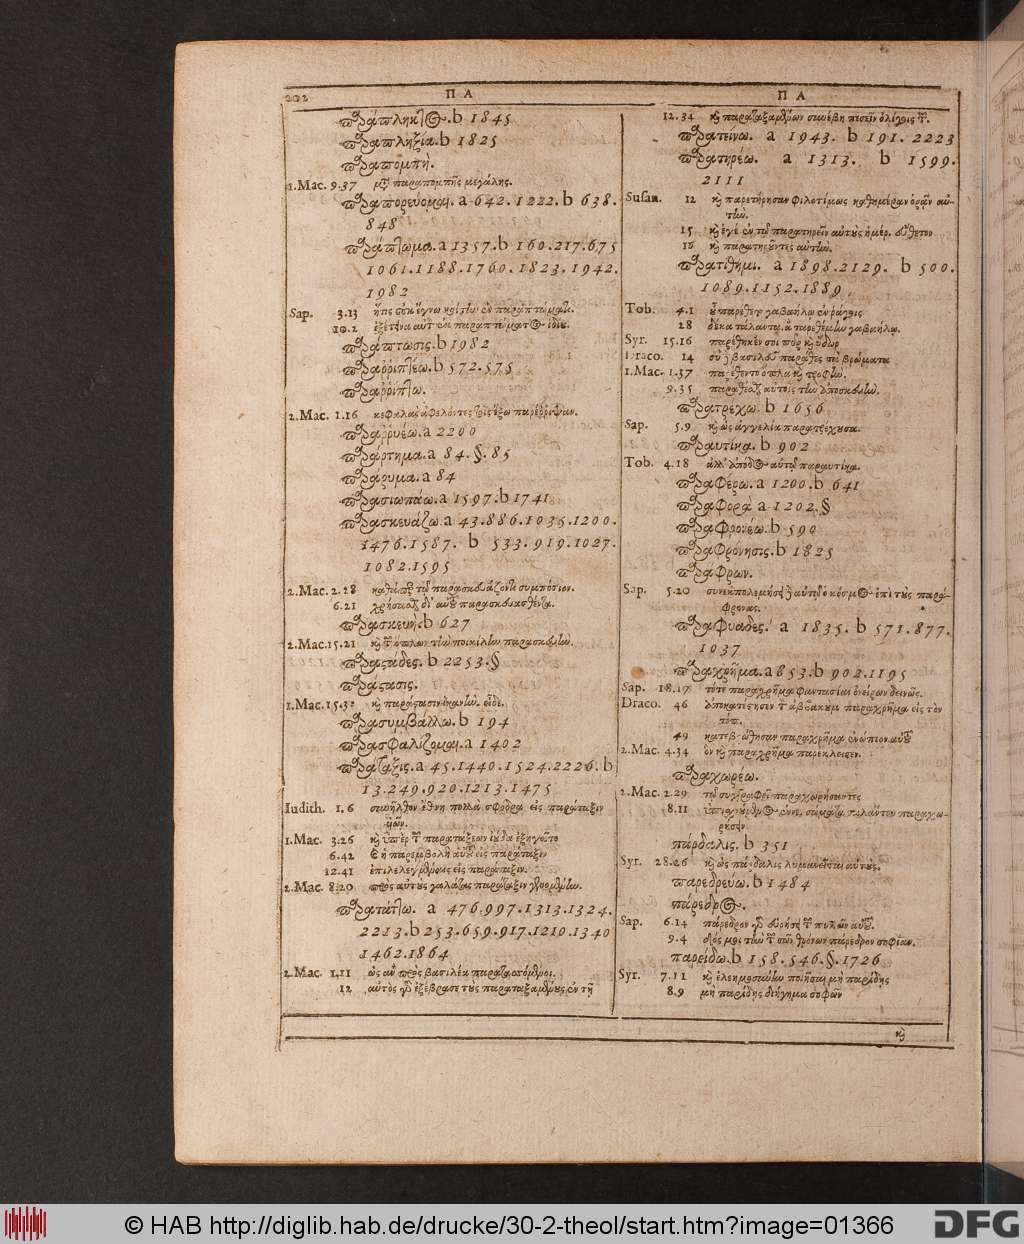 202 ΠΑ ΠΑ
παράπληκτος. b 1845
παραπληξία. b 1825
παραπομπὴ.
1. Mac. 9.37 μετὰ παραπομπῆς μεγάλης.
παραπορεύομαι. a 642. 1222. b 638.
848
παράπτωμα. a 1357. b 160. 217. 675
1061. 1188. 1760. 1823. 1942.
1982
Sap. 3.13 ἥτις οὐκ ἔγνω κοίτην ἐν παραπτώματι.
10.2 παραπτώματος ἰδίου.
παράπτωσις. b 1982
παραῤῥιπτέω. b 572. 575
παραῤῥίπτω.
2. Mac. 1.16 κεφαλὰς ἀφελόντες τοῖς ἔξω παρέῤῥιψαν.
παραῤῥυέω. a 2200
παράρτημα. a 84. §. 85
παράρυμα. a 84
παρασιωπάω. a 1597. b 1741
παρασκευάζω. a 43. 886. 1035. 1200.
1476. 1587. b 533. 919. 1027.
1082. 1595
2. Mac. 2.28 καθάπερ τῷ παρασκευάζοντι συμπόσιον.
6.21 δι' αὐτοῦ παρασκευασθέντα.
παρασκευή. b 627
2. Mac. 15.21 καὶ τῶν ὅπλων τὴν ποικίλην παρασκευήν.
παραστάδες. b 2253. §
παράστασις.
1. Mac. 15.32 καὶ παράστασιν ἱκανὴν.
παρασυμβάλλω. b 194
παρασφαλίζομαι. a 1402
παράταξις. a 45. 1440. 1524. 2226. b
13. 249. 920. 1213. 1475
Iudith. 1.6 συνῆλθον ἔθνη πολλὰ σφόδρα εἰς παράταξιν
1. Mac. 3.26 καὶ ὑπὲρ τῶν παρατάξεων ἰούδα ἐξηγεῖτο
6.42 καὶ ἡ παρεμβολὴ αὐτοῦ εἰς παράταξιν
12.41 ἐπιλελεγμέναις εἰς παράταξιν.
2. Mac. 8.20 πρὸς αὐτοὺς γαλάτας παράταξιν γενομένην.
παρατάττω. a 476. 997. 1313. 1324.
2213. b 253. 659. 917. 1210. 1340
1462. 1864
2. Mac. 1.11 ὡς ἂν πρὸς βασιλέα παραταττόμενοι.
12 αὐτὸς γὰρ ἐξέβρασε τοὺς παραταξαμένους ἐν τῇ
12.34 καὶ παραταξαμένων συνέβη πεσεῖν ὀλίγους τῶν.
παρατείνω. a 1943. b 191. 2223
παρατηρέω. a 1313. b 1599.
2111
Susan. 12 καὶ παρετήρησαν φιλοτίμως καθημέραν ὁρᾷν αὐ-
τήν.
15 καὶ ἐγένετο ἐν τῷ παρατηρεῖν αὐτοὺς ἡμέρ. εὔθετον
16 καὶ παρατηροῦντες αὐτήν.
παρατίθημι. a 1898. 2129. b 500.
1089. 1152. 1889
Tob. 4.1 οὗ παρέθετο γαβαήλῳ ἐν ῥάγοις
28 δέκα τάλαντα, ἃ παρεθέμην γαβαήλῳ.
Syr. 15.16 παρέθηκέν σοι πῦρ καὶ ὕδωρ
Draco. 14 σὺ βασιλεῦ παράθες τὰ βρώματα
1. Mac. 1.37 παρέθεντο ὅπλα καὶ τροφήν.
9.35 παραθέσθαι αὐτοῖς τὴν ἀποσκευήν.
παρατρέχω. b 1656
Sap. 5.9 καὶ ὡς ἀγγελία παρατρέχουσα.
παραυτίκα. b 902
Tob. 4.18 ἀλλ' ἀπόδος αὐτῷ παραυτίκα.
παραφέρω. a 1200. b 641
παραφορὰ a 1202. §
παραφρονέω. b 590
παραφρόνησις. b 1825
παράφρων.
Sap. 5.20 συνεκπολεμήσει δὲ αὐτῷ ὁ κόσμος ἐπὶ τοὺς παρά-
φρονας.
παραφυάδες. a 1835. b 571. 877.
1037
παραχρῆμα. a 853. b 902. 1195
Sap. 18.17 τότε παραχρῆμα φαντασίαι ὀνείρων δεινῶς.
Draco. 46 ἀποκατέστησεν τὸν ἀββακοὺμ παραχρῆμα εἰς τὸν
τόπ.
49 κατεβρώθησαν παραχρῆμα ἐνώπιον αὐτοῦ
2. Mac. 4.34 ὃν καὶ παραχρῆμα παρέκλεισεν.
παραχωρέω.
2. Mac. 2.29 τῷ συγγραφεῖ παραχωρήσαντες
8.11 ταλάντου παραχω-
ρήσειν
πάρδαλις. b 351
Syr. 28.26 καὶ ὡς πάρδαλις λυμανεῖται αὐτούς.
παρεδρεύω. b 1484
πάρεδρος.
Sap. 6.14 πάρεδρον γὰρ εὑρήσει τῶν πυλῶν αὐτοῦ.
9.4 δός μοι τὴν τῶν σῶν θρόνων πάρεδρον σοφίαν.
παρείδω. b 158. 546. §. 1726
Syr. 7.11 καὶ ἐλεημοσύνην ποιῆσαι μὴ παρίδῃς
8.9 μὴ παρίδῃς διήγημα σοφῶν
καὶ
© HAB http://diglib.hab.de/drucke/30-2-theol/start.htm?image=01366 DFG